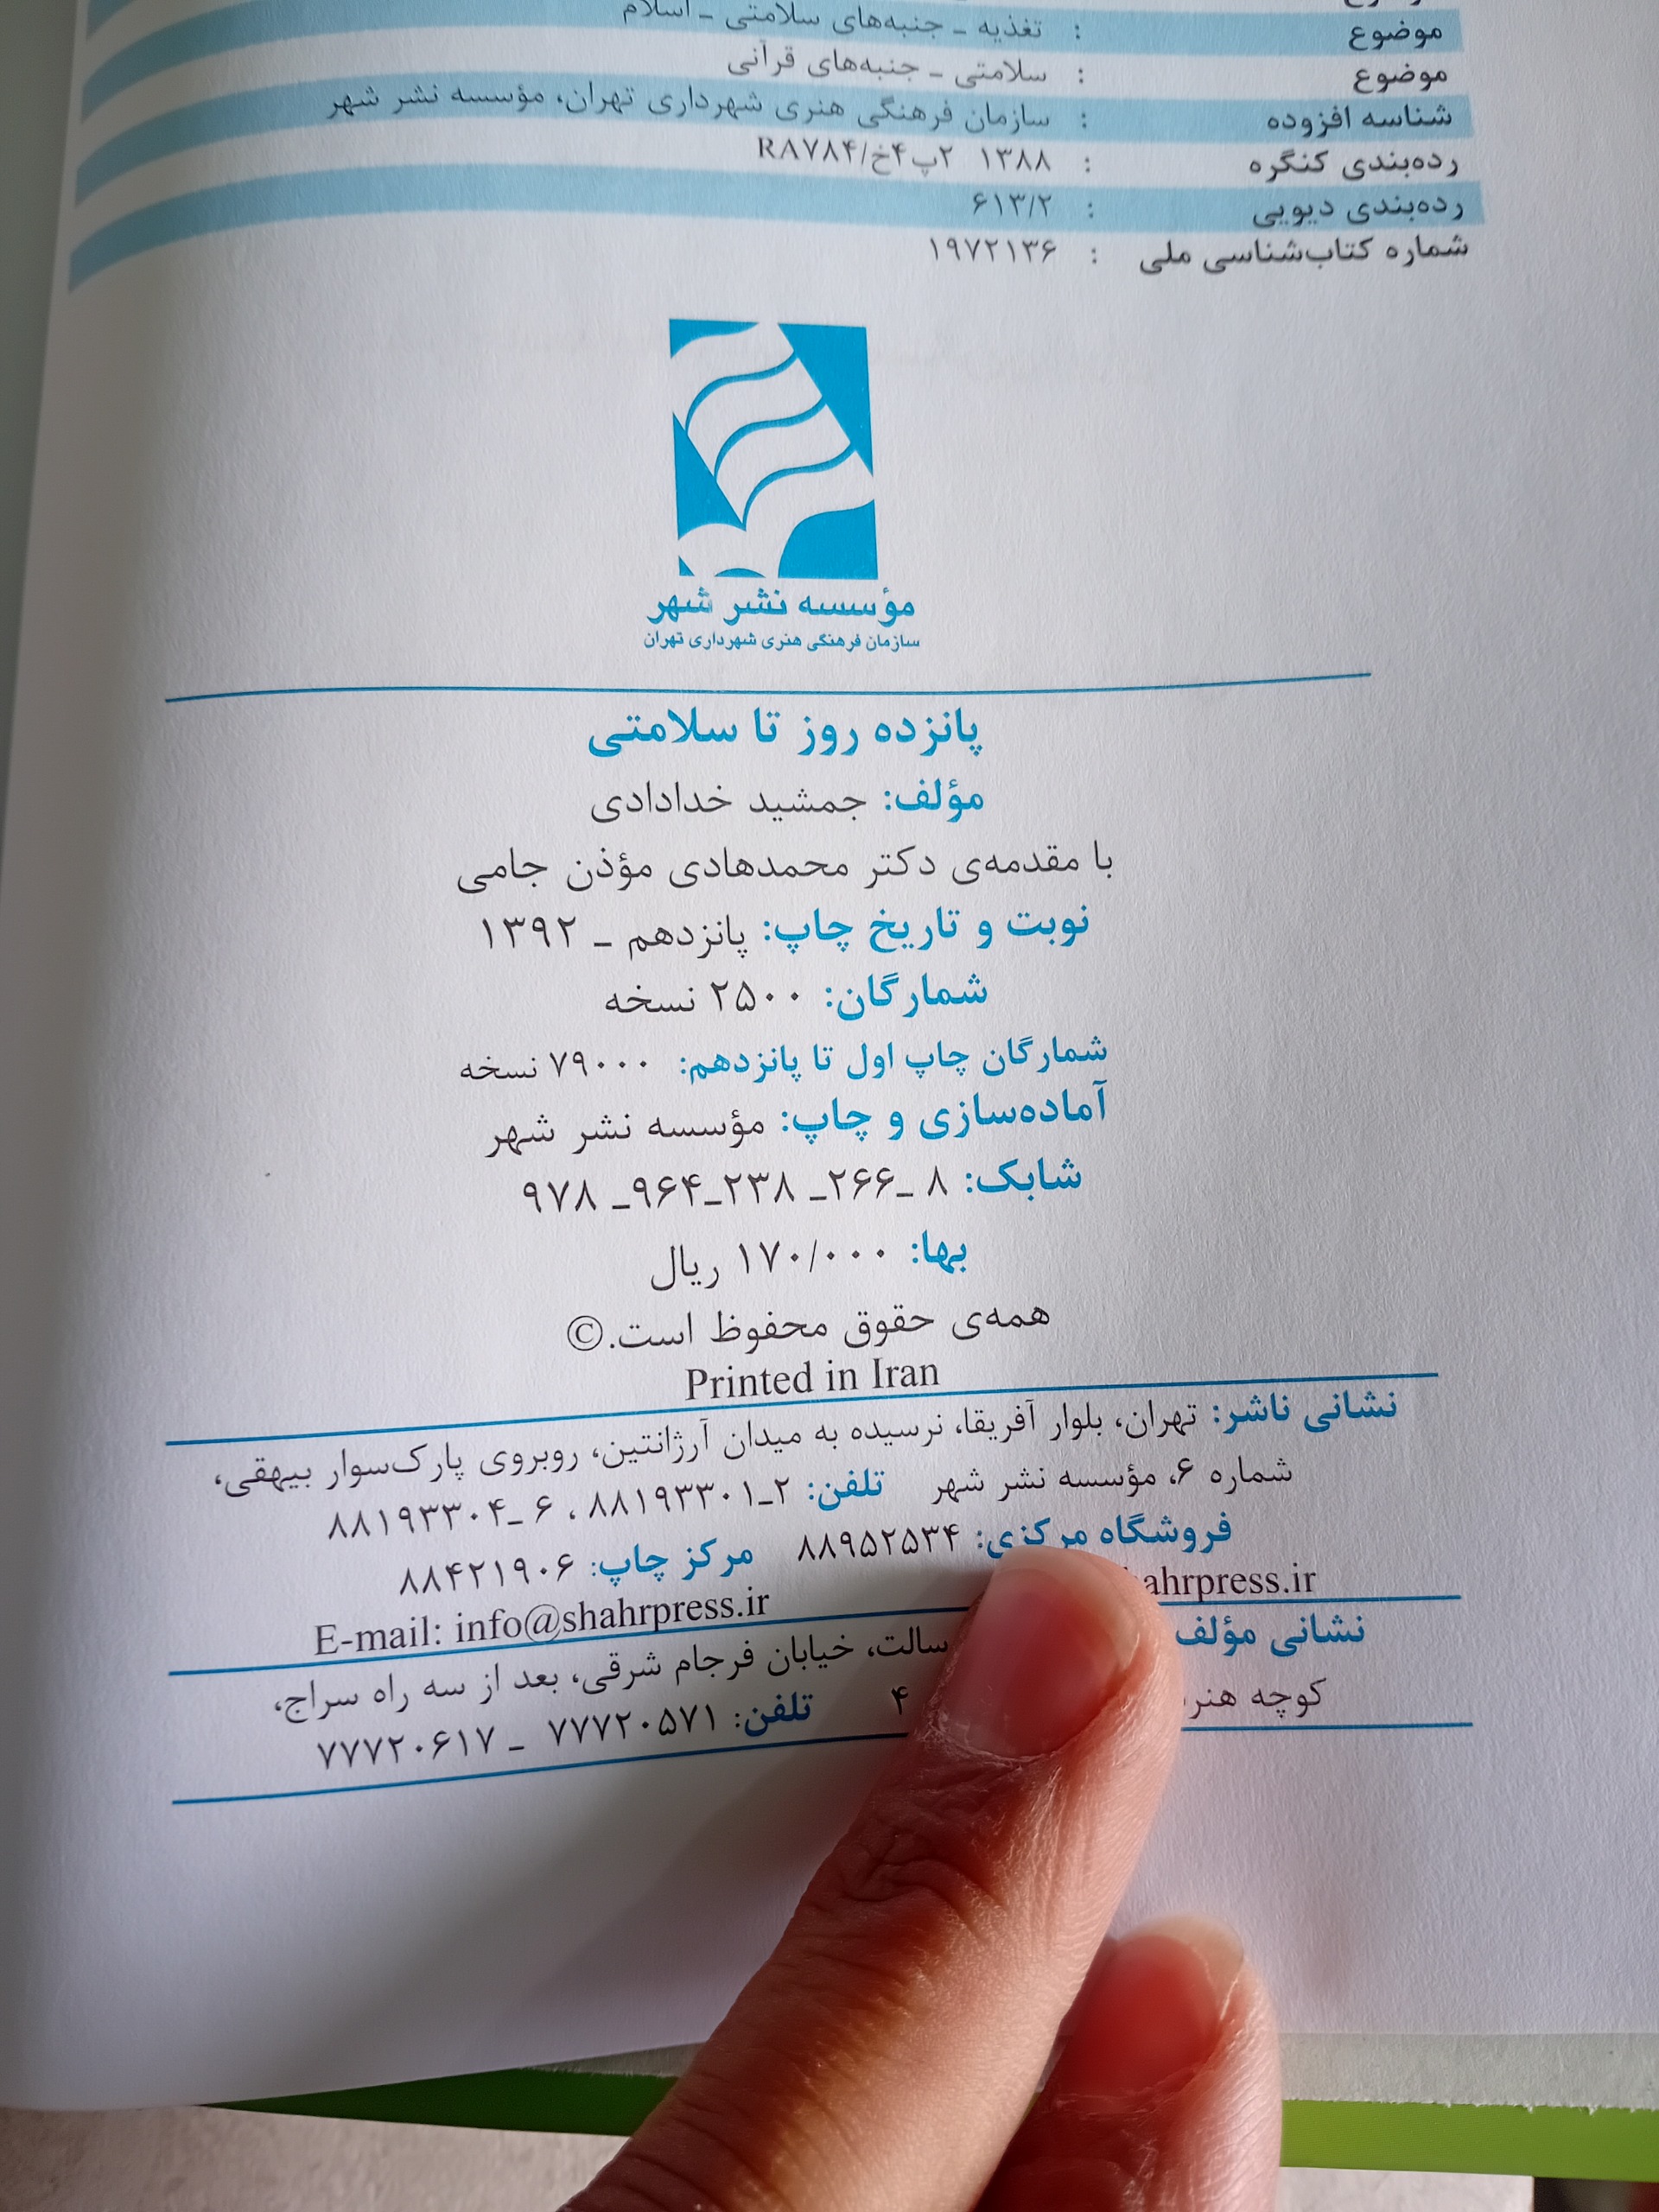 موضوع : تغذیه ـ جنبه‌های سلامتی ـ اسلام
موضوع : سلامتی ـ جنبه‌های قرآنی
شناسه افزوده : سازمان فرهنگی هنری شهرداری تهران، مؤسسه نشر شهر
رده‌بندی کنگره : ۱۳۸۸ ۲پ۴خ/R۸۷۸۴
رده‌بندی دیویی : ۶۱۳/۲
شماره کتاب‌شناسی ملی : ۱۹۷۲۱۳۶
مؤسسه نشر شهر
سازمان فرهنگی هنری شهرداری تهران
پانزده روز تا سلامتی
مؤلف: جمشید خدادادی
با مقدمه‌ی دکتر محمدهادی مؤذن جامی
نوبت و تاریخ چاپ: پانزدهم ـ ۱۳۹۲
شمارگان: ۲۵۰۰ نسخه
شمارگان چاپ اول تا پانزدهم: ۷۹۰۰۰ نسخه
آماده‌سازی و چاپ: مؤسسه نشر شهر
شابک: ۸ ـ۲۶۶ـ ۲۳۸ـ۹۶۴ـ ۹۷۸
بها: ۱۷۰/۰۰۰ ریال
همه‌ی حقوق محفوظ است.©
Printed in Iran
نشانی ناشر: تهران، بلوار آفریقا، نرسیده به میدان آرژانتین، روبروی پارک‌سوار بیهقی،
شماره ۶، مؤسسه نشر شهر تلفن: ۲ـ۸۸۱۹۳۳۰۱ ، ۶ ـ۸۸۱۹۳۳۰۴
فروشگاه مرکزی: ۸۸۹۵۲۵۳۴ مرکز چاپ: ۸۸۴۲۱۹۰۶
E-mail: info@shahrpress.ir ahrpress.ir
نشانی مؤلف سالت، خیابان فرجام شرقی، بعد از سه راه سراج،
کوچه هنر ۴ تلفن: ۷۷۷۲۰۵۷۱ ـ ۷۷۷۲۰۶۱۷